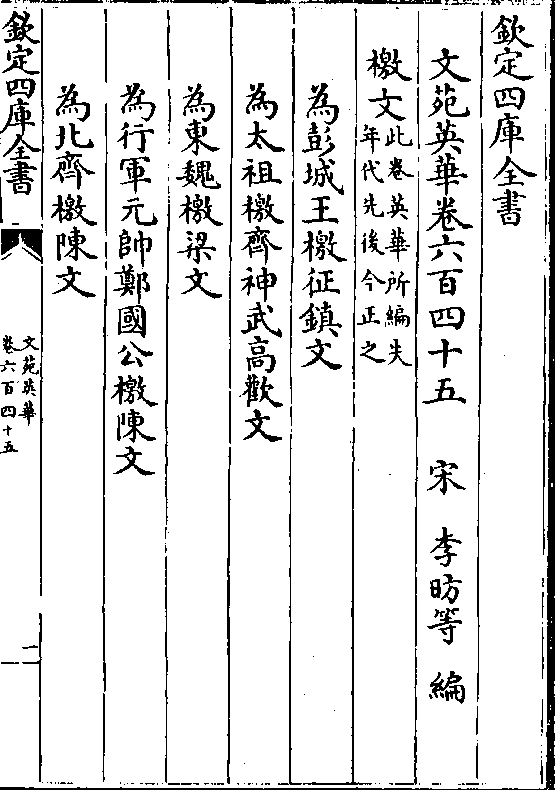 欽定四庫全書
文苑英華卷六百四十五　宋　李昉等　編
檄文此卷英華所編失
年代先後今正之
為彭城王檄征鎮文
為太祖檄齊神武高歡文
為東魏檄梁文
為行軍元帥鄭國公檄陳文
為北齊檄陳文
欽定四庫全書
文苑英華
卷六百四十五
一